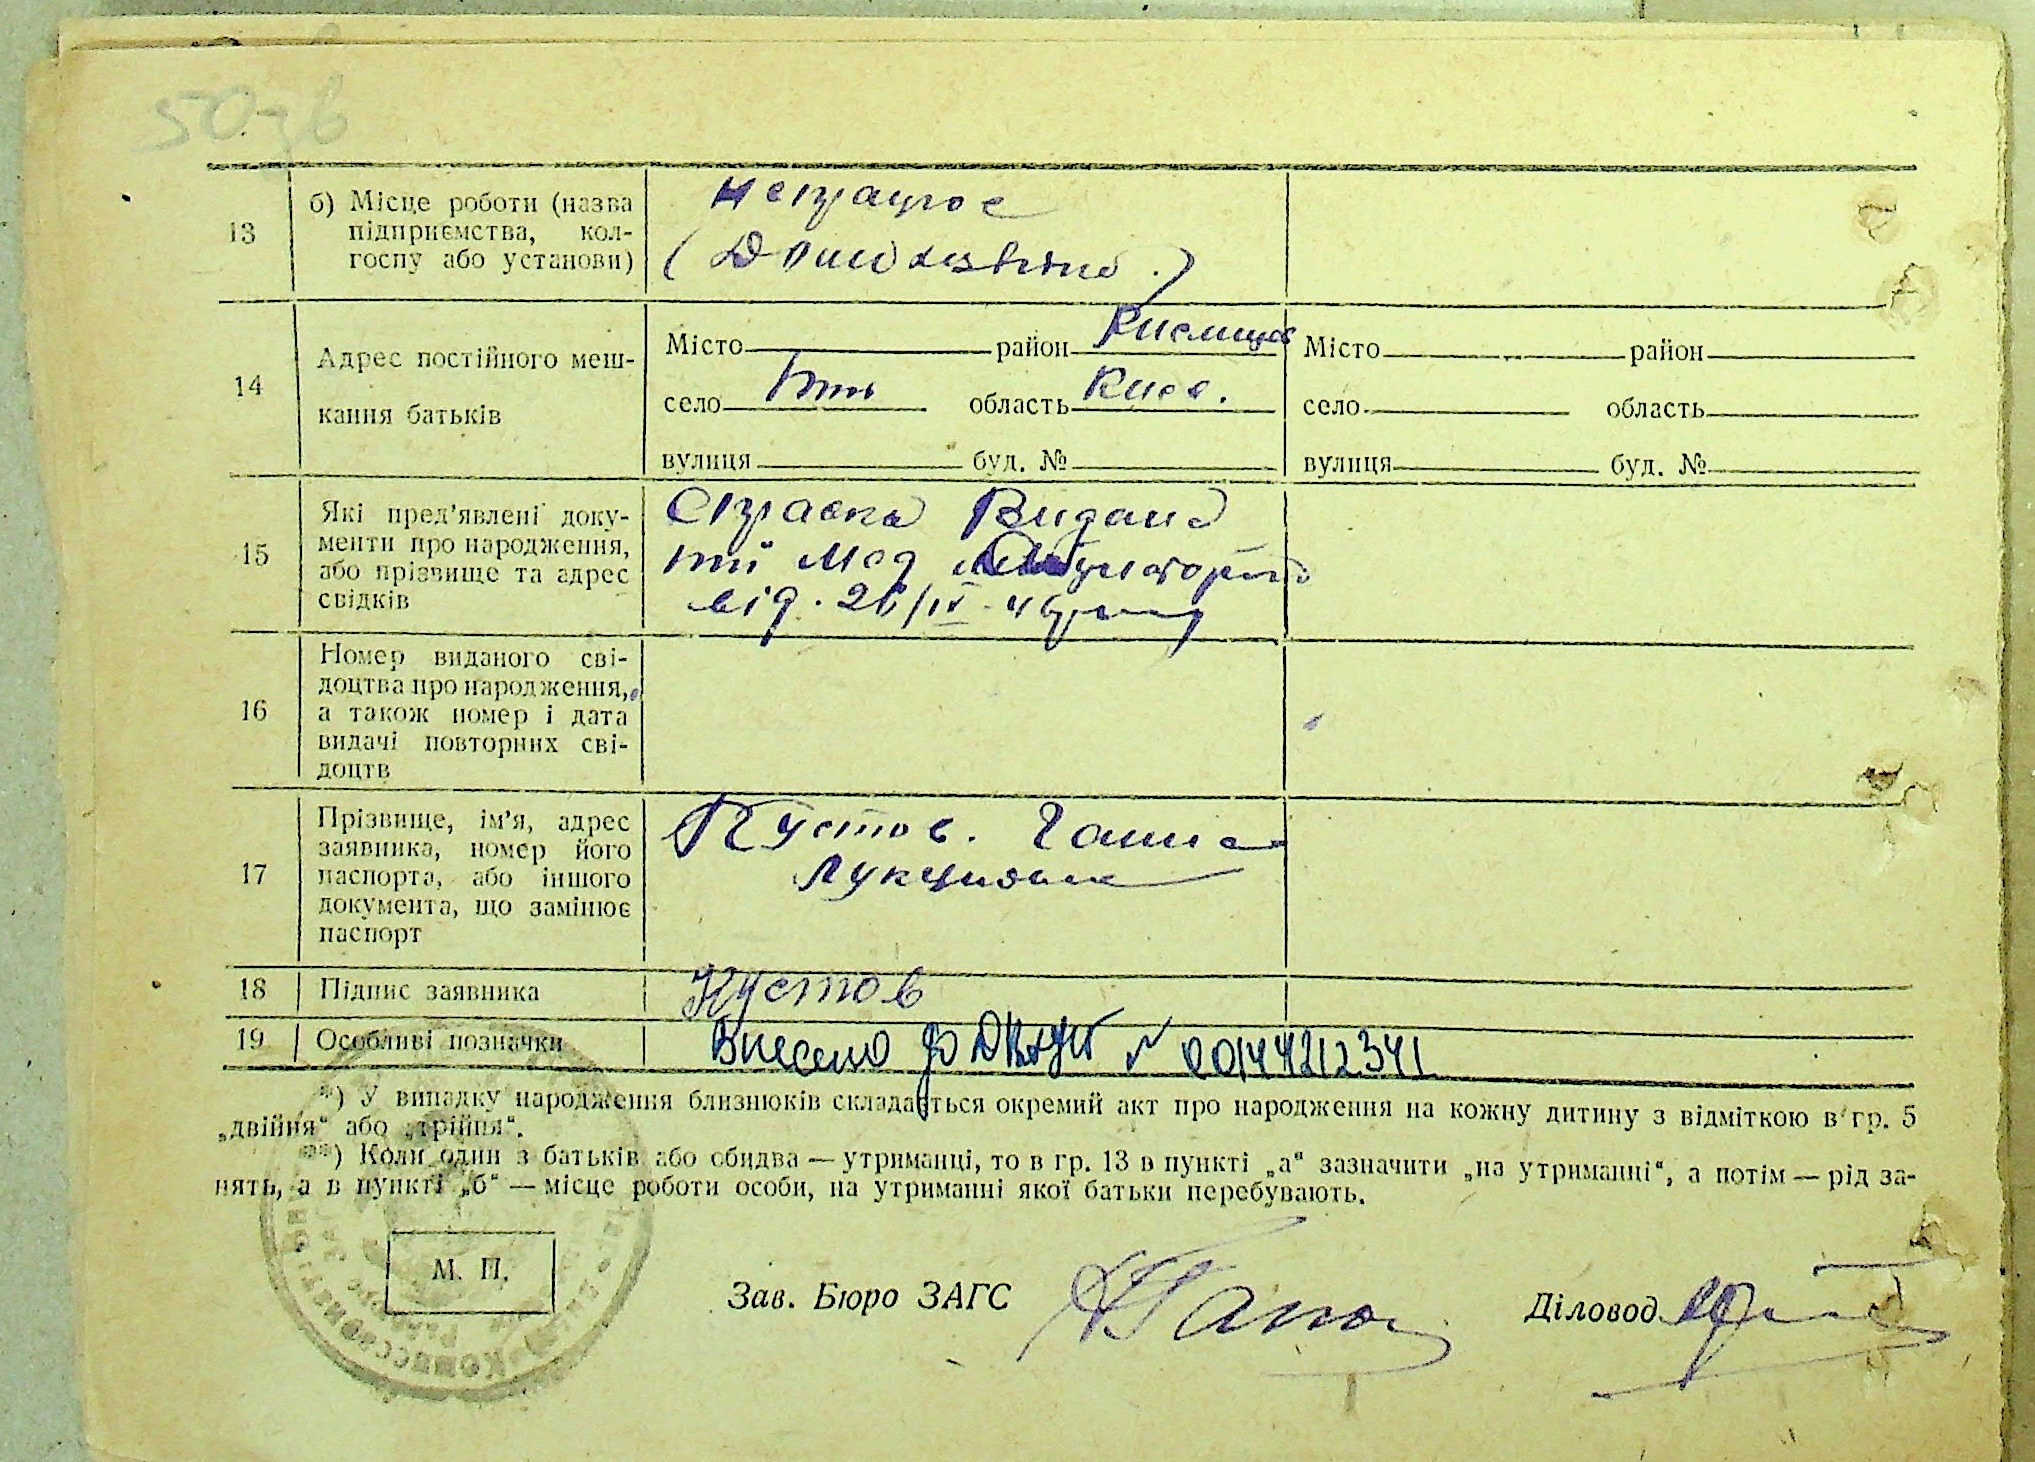 50зв
13
б) Місце роботи (назва
підприємства, кол-
госпу або установи)
непрацює
(
.)
14
Адрес постійного меш-
кання батьків
Місто район
село область Києв.
вулиця буд. №
Місто район
село область
вулиця буд. №
15
Які пред'явлені доку-
менти про народження,
або прізвище та адрес
свідків
Справка Видана
від. 26/IV-
16
Номер виданого сві-
доцтва про народження,
а також номер і дата
видачі повторних сві-
доцтв
17
Прізвище, ім'я, адрес
заявника, номер його
паспорта, або іншого
документа, що замінює
паспорт
Кустов. Ганна
18
Підпис заявника
Кустов
19
Особливі позначки
Внесено до ДРАЦС № 00144212341
*) У випадку народження близнюків складається окремий акт про народження на кожну дитину з відміткою в гр. 5
„двійня“ або „трійня“.
**) Коли один з батьків або обидва — утриманці, то в гр. 13 в пункті „а“ зазначити „на утриманні“, а потім — рід за-
нять, а в пункті „б“ — місце роботи особи, на утриманні якої батьки перебувають.
М. П.
Зав. Бюро ЗАГС
Діловод